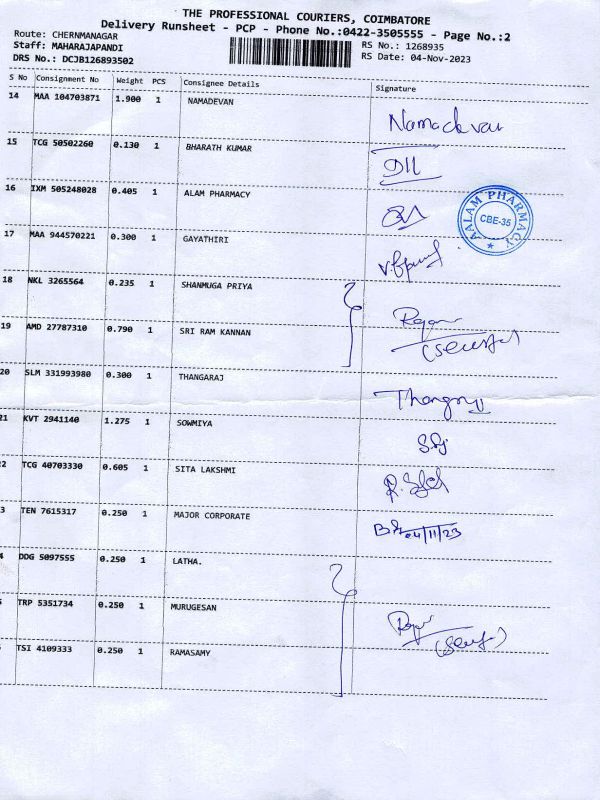 THE PROFESSIONAL COURIERS, COIMBATORE
Delivery Runsheet - PCP - Phone No.:0422-3505555 - Page No.:2
Route: CHERNMANAGAR
Staff: MAHARAJAPANDI
RS No.: 1268935
DRS No.: DCJB126893502
RS Date: 04-Nov-2023
S No Consignment No Weight PCS Consignee Details Signature
14 MAA 104703871 1.900 1 NAMADEVAN
Namadevan
15 TCG 50502260 0.130 1 BHARATH KUMAR
16 IXM 505248028 0.405 1 ALAM PHARMACY
AALAM PHARMACY
CBE-35
17 MAA 944570221 0.300 1 GAYATHIRI
18 NKL 3265564 0.235 1 SHANMUGA PRIYA
19 AMD 27787310 0.790 1 SRI RAM KANNAN
20 SLM 331993980 0.300 1 THANGARAJ
21 KVT 2941140 1.275 1 SOWMIYA
2 TCG 40703330 0.605 1 SITA LAKSHMI
3 TEN 7615317 0.250 1 MAJOR CORPORATE
04/11/23
4 DDG 5097555 0.250 1 LATHA.
TRP 5351734 0.250 1 MURUGESAN
TSI 4109333 0.250 1 RAMASAMY